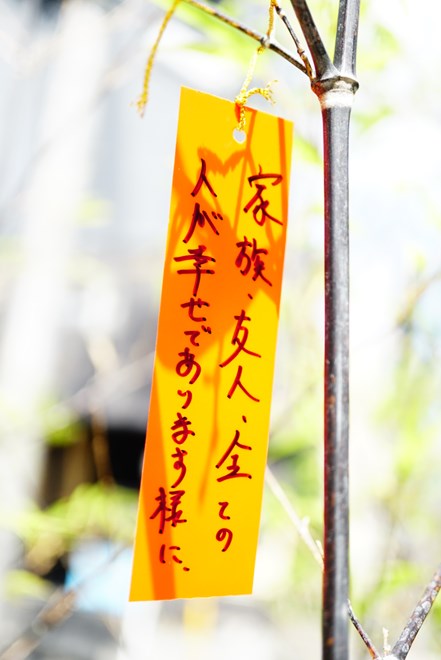 家族、友人、全ての
人が幸せであります様に。